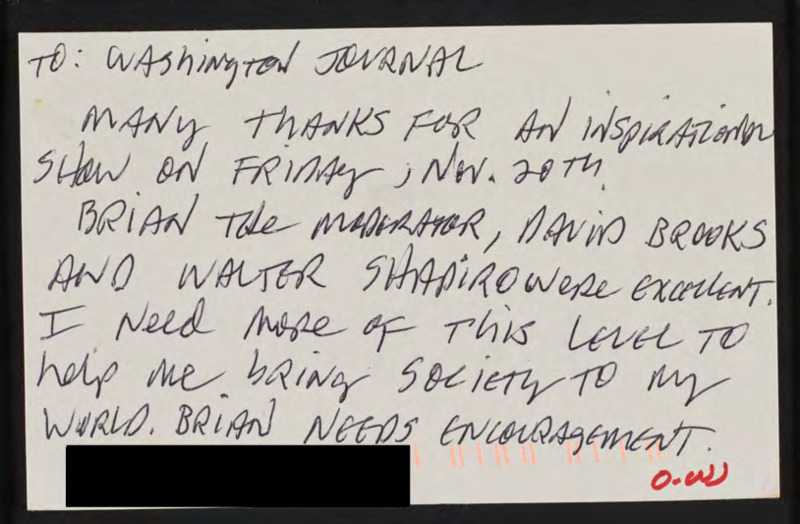 TO: WAShington JOURNAL
MANY ThANKS FOR AN INSPIRATIONAL
SHOW ON FRIDAY, Nov. 20TH
BRIAN The MODERATOR, DAVID BROOKS
AND WALTER SHAPIRO WERE EXCELLENT.
I Need More OF This LEVEL TO
help me bRING SOCIETY TO My
WORLD. BRIAN NEEDS ENCOURAGEMENT.